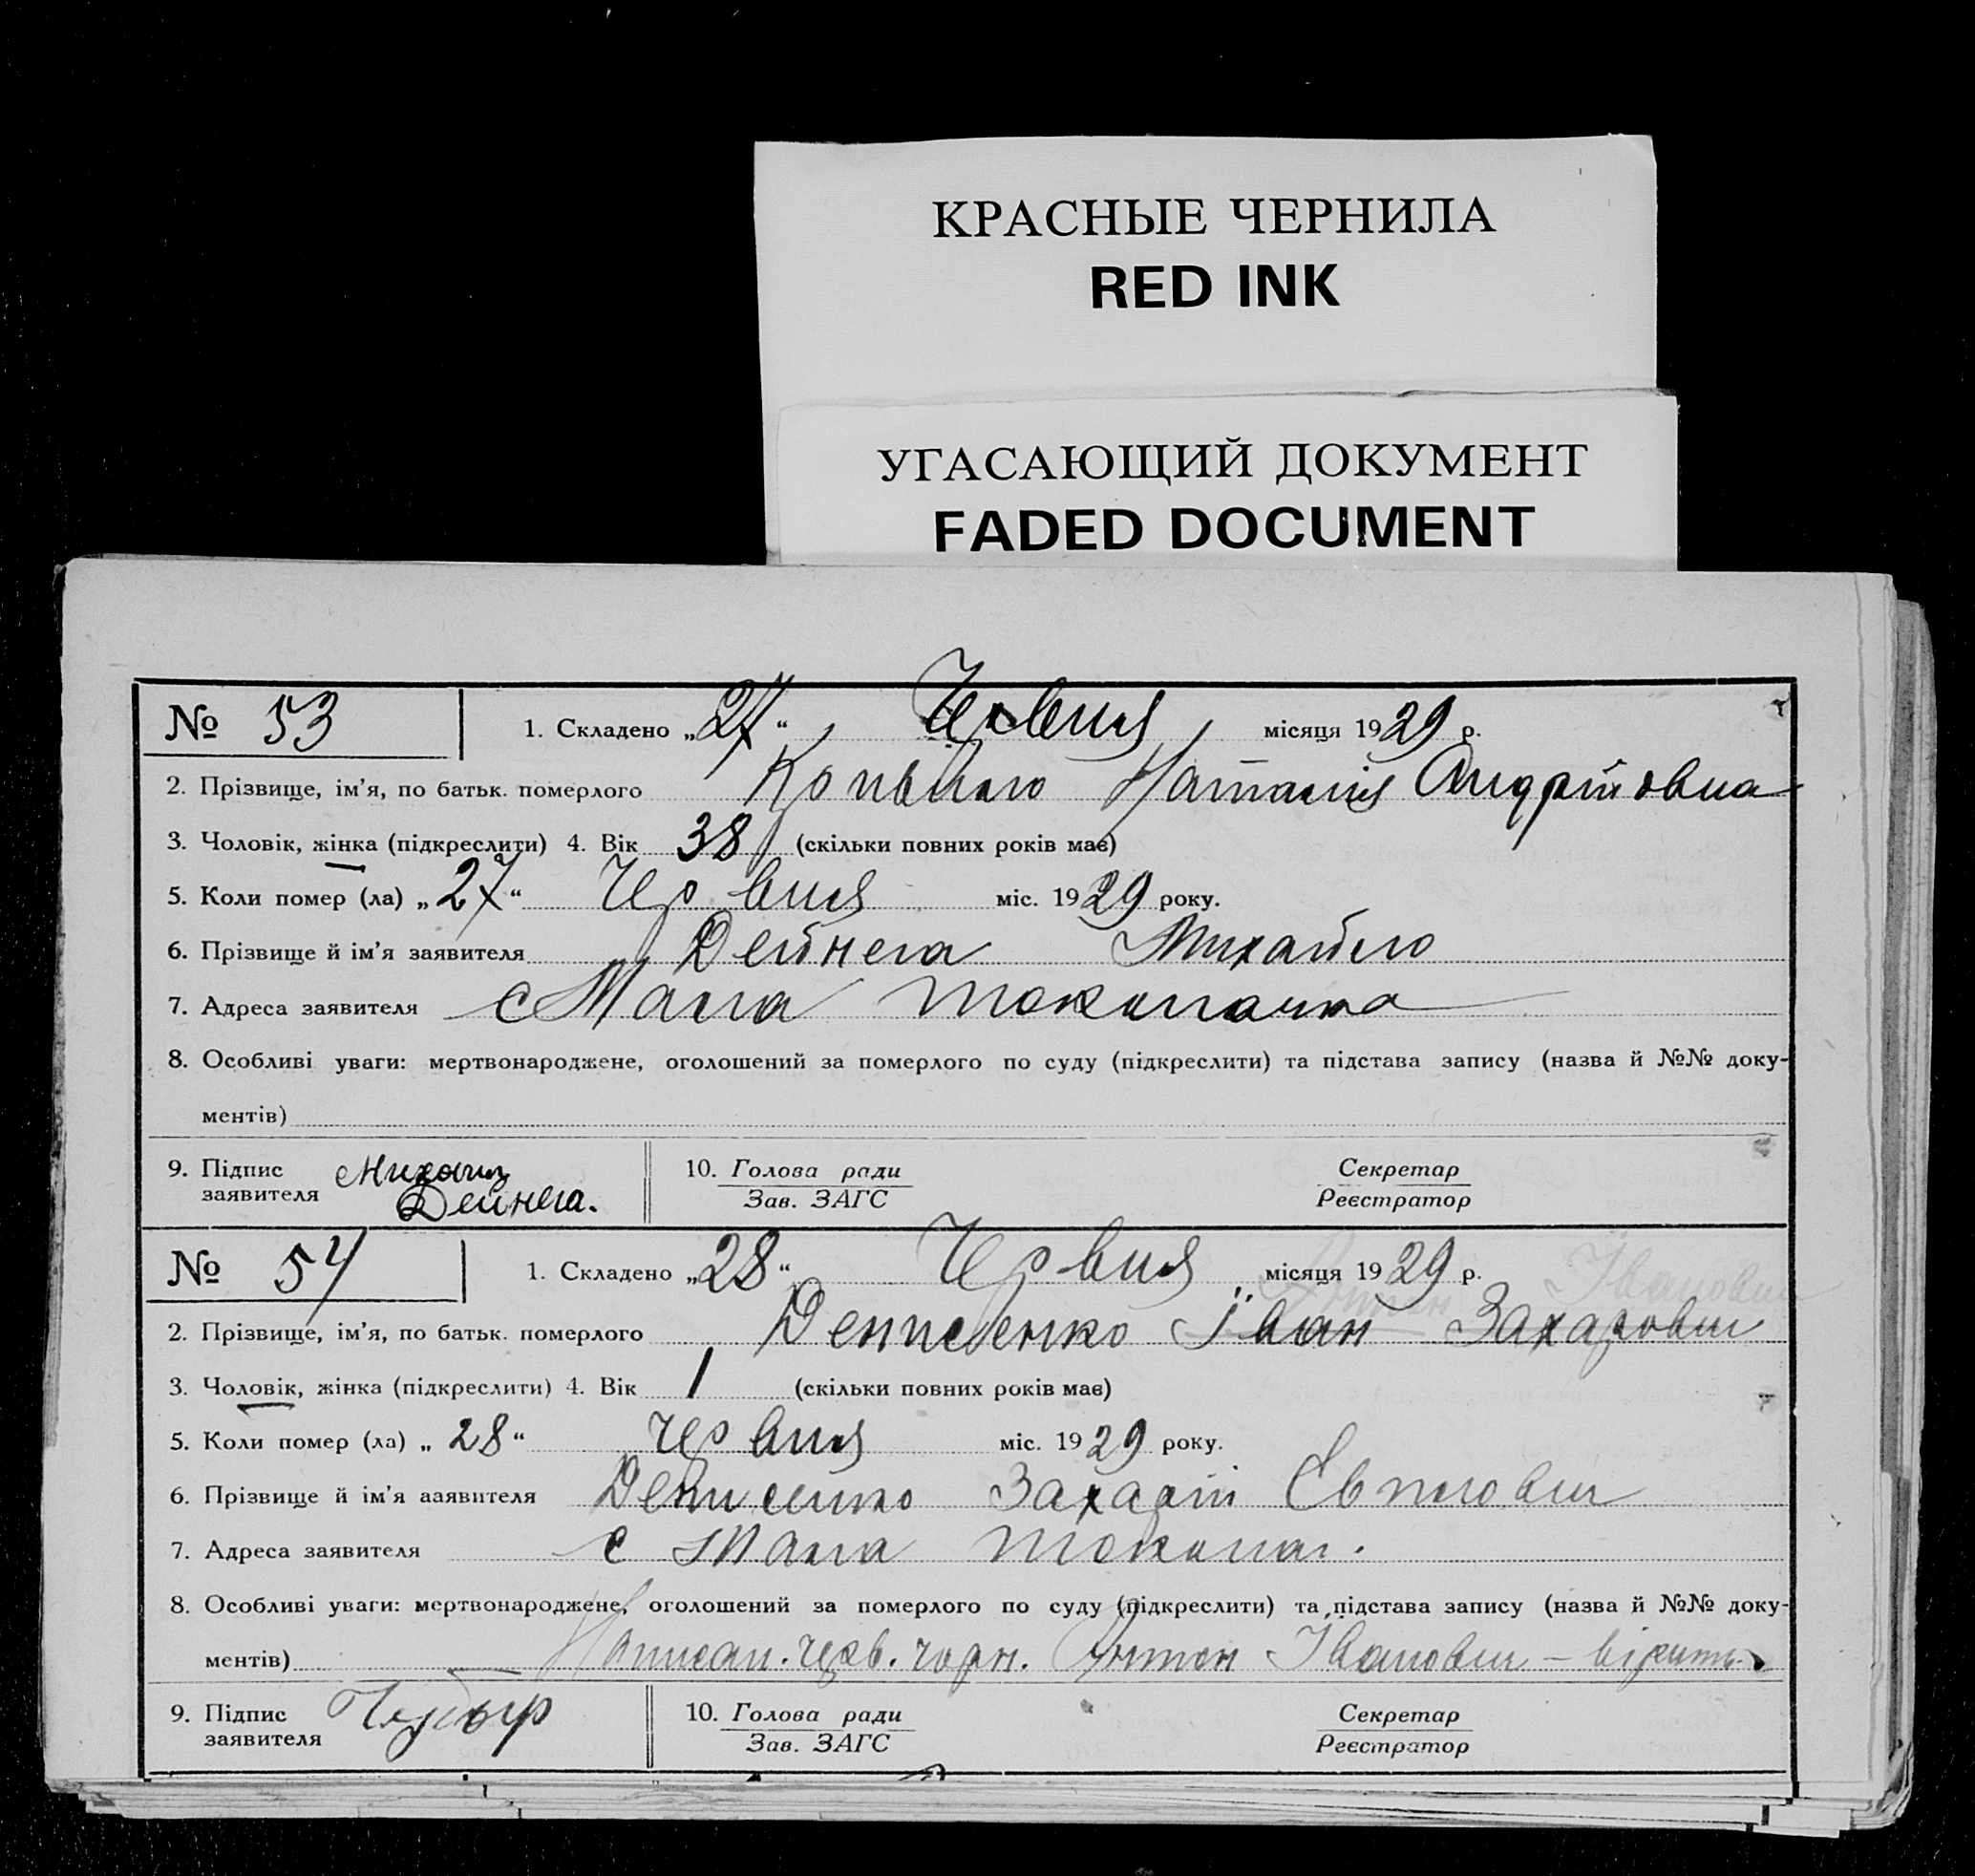 КРАСНЫЕ ЧЕРНИЛА
RED INK
УГАСАЮЩИЙ ДОКУМЕНТ
FADED DOCUMENT
№ 53 1. Складено „27“ Червня місяця 1929 р.
2. Прізвище, ім'я, по батьк. померлого Наталія Андріївна
3. Чоловік, жінка (підкреслити) 4. Вік 38 (скільки повних років має)
5. Коли помер (ла) „27“ Червня міс. 1929 року.
6. Прізвище й ім'я заявителя Дейнега Михайло
7. Адреса заявителя с Мала Токмачка
8. Особливі уваги: мертвонароджене, оголошений за померлого по суду (підкреслити) та підстава запису (назва й №№ доку-
ментів)
9. Підпис заявителя Михаил Дейнега. 10. Голова ради Секретар
Зав. ЗАГС Реєстратор
№ 54 1. Складено „28“ Червня місяця 1929 р.
2. Прізвище, ім'я, по батьк. померлого Денисенко Іван Захарович
3. Чоловік, жінка (підкреслити) 4. Вік 1 (скільки повних років має)
5. Коли помер (ла) „28“ Червня міс. 1929 року.
6. Прізвище й ім'я заявителя Денисенко Захарій
7. Адреса заявителя с Мала
8. Особливі уваги: мертвонароджене, оголошений за померлого по суду (підкреслити) та підстава запису (назва й №№ доку-
ментів) Написан. черв. чорн. Антон Іванович – вірить
9. Підпис заявителя 10. Голова ради Секретар
Зав. ЗАГС Реєстратор